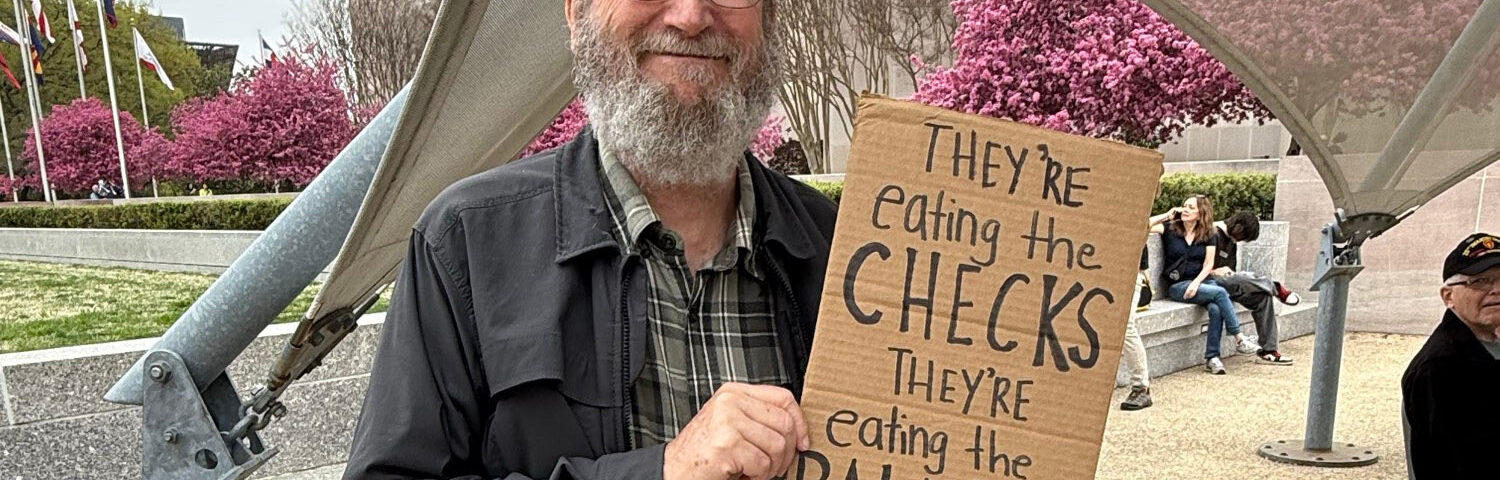 THEY'RE
eating the
CHECKS
THEY'RE
eating the